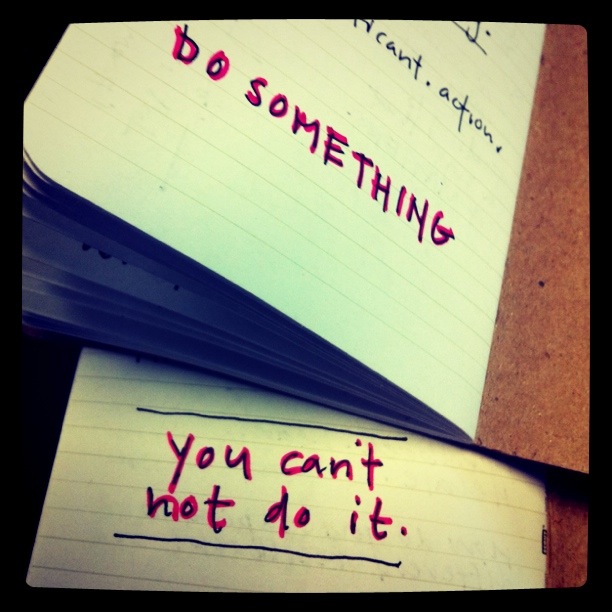 action.
DO SOMETHING
You can't
not do it.